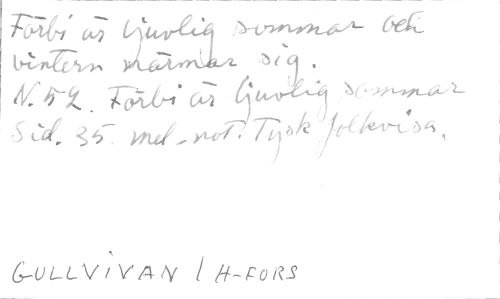 Förbi är ljuvlig sommar och
vintern närmar sig.
N. 52. Förbi är ljuvlig sommar
Sid. 35. mel-not. Tysk folkvisa.
GULLVIVAN / H-FORS